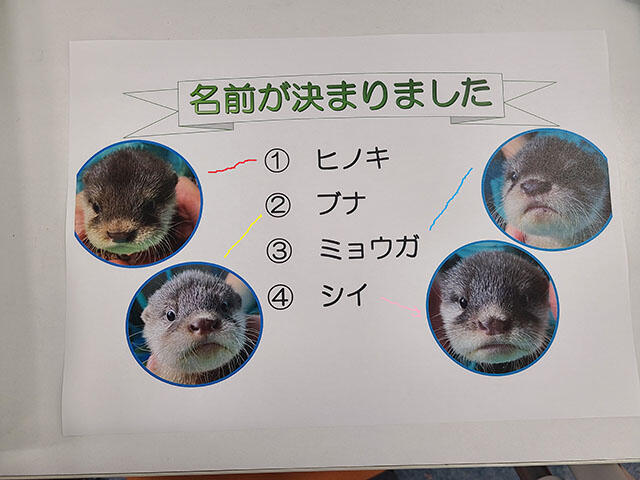 名前が決まりました
① ヒノキ
② ブナ
③ ミョウガ
④ シイ